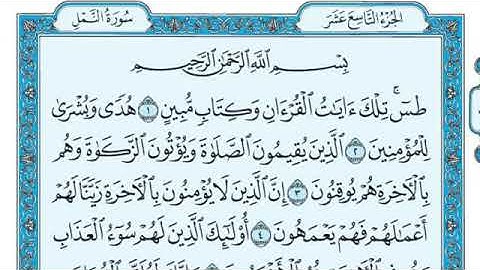 الجزء التاسع عشر
سورة النمل
بِسْمِ ٱللَّهِ ٱلرَّحْمَٰنِ ٱلرَّحِيمِ
طسٓ ۚ تِلْكَ ءَايَٰتُ ٱلْقُرْءَانِ وَكِتَابٍ مُّبِينٍ ١ هُدًى وَبُشْرَىٰ
لِلْمُؤْمِنِينَ ٢ ٱلَّذِينَ يُقِيمُونَ ٱلصَّلَوٰةَ وَيُؤْتُونَ ٱلزَّكَوٰةَ وَهُم
بِٱلْءَاخِرَةِ هُمْ يُوقِنُونَ ٣ إِنَّ ٱلَّذِينَ لَا يُؤْمِنُونَ بِٱلْءَاخِرَةِ زَيَّنَّا لَهُمْ
أَعْمَٰلَهُمْ فَهُمْ يَعْمَهُونَ ٤ أُوْلَٰٓئِكَ ٱلَّذِينَ لَهُمْ سُوٓءُ ٱلْعَذَابِ